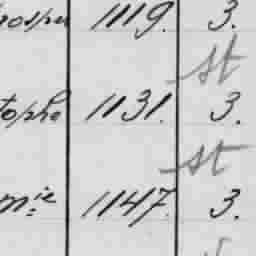 1119. 3.
st
tophe 1131. 3.
st
mie 1147. 3.